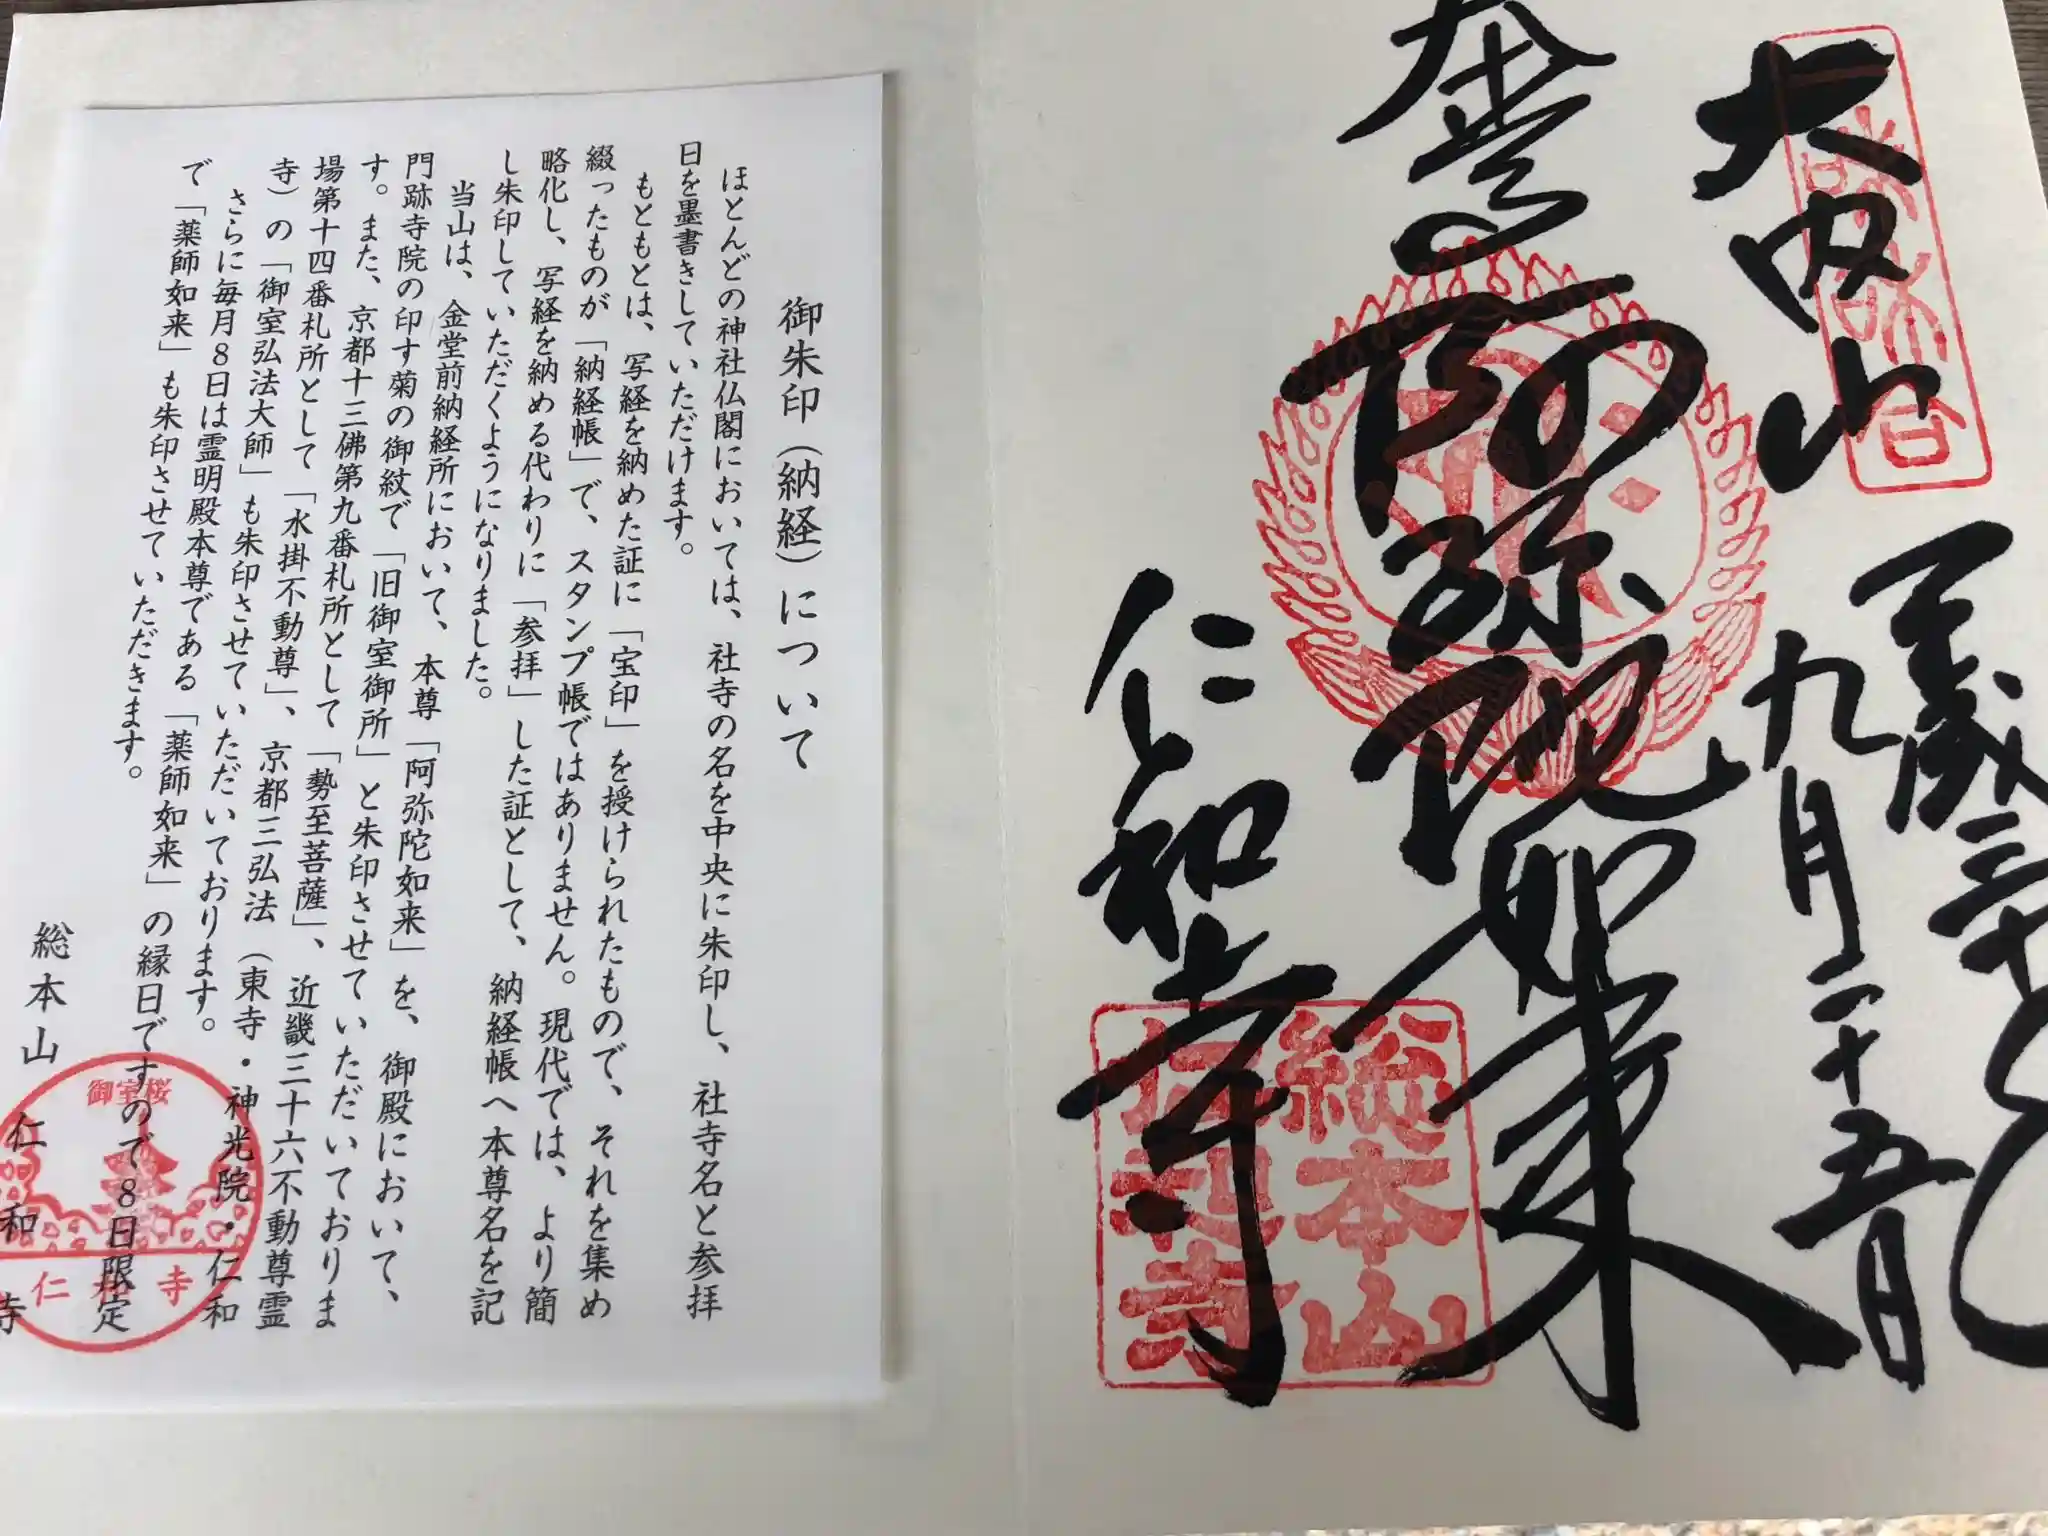 大内山
平成三十年
九月二十五日
本尊
阿弥陀如来
仁和寺
総本山
仁和寺
御朱印(納経)について
ほとんどの神社仏閣においては、社寺の名を中央に朱印し、社寺名と参拝
日を墨書きしていただけます。
もともとは、写経を納めた証に「宝印」を授けられたもので、それを集め
綴ったものが「納経帳」で、スタンプ帳ではありません。現代では、より簡
略化し、写経を納める代わりに「参拝」した証として、納経帳へ本尊名を記
し朱印していただくようになりました。
当山は、金堂前納経所において、本尊「阿弥陀如来」を、御殿において、
門跡寺院の印す菊の御紋で「旧御室御所」と朱印させていただいておりま
す。また、京都十三佛第九番札所として「勢至菩薩」、近畿三十六不動尊霊
場第十四番札所として「水掛不動尊」、京都三弘法(東寺・神光院・仁和
寺)の「御室弘法大師」も朱印させていただいております。
さらに毎月8日は霊明殿本尊である「薬師如来」の縁日ですので8日限定
で「薬師如来」も朱印させていただきます。
総本山 仁和寺
御室桜
仁和寺